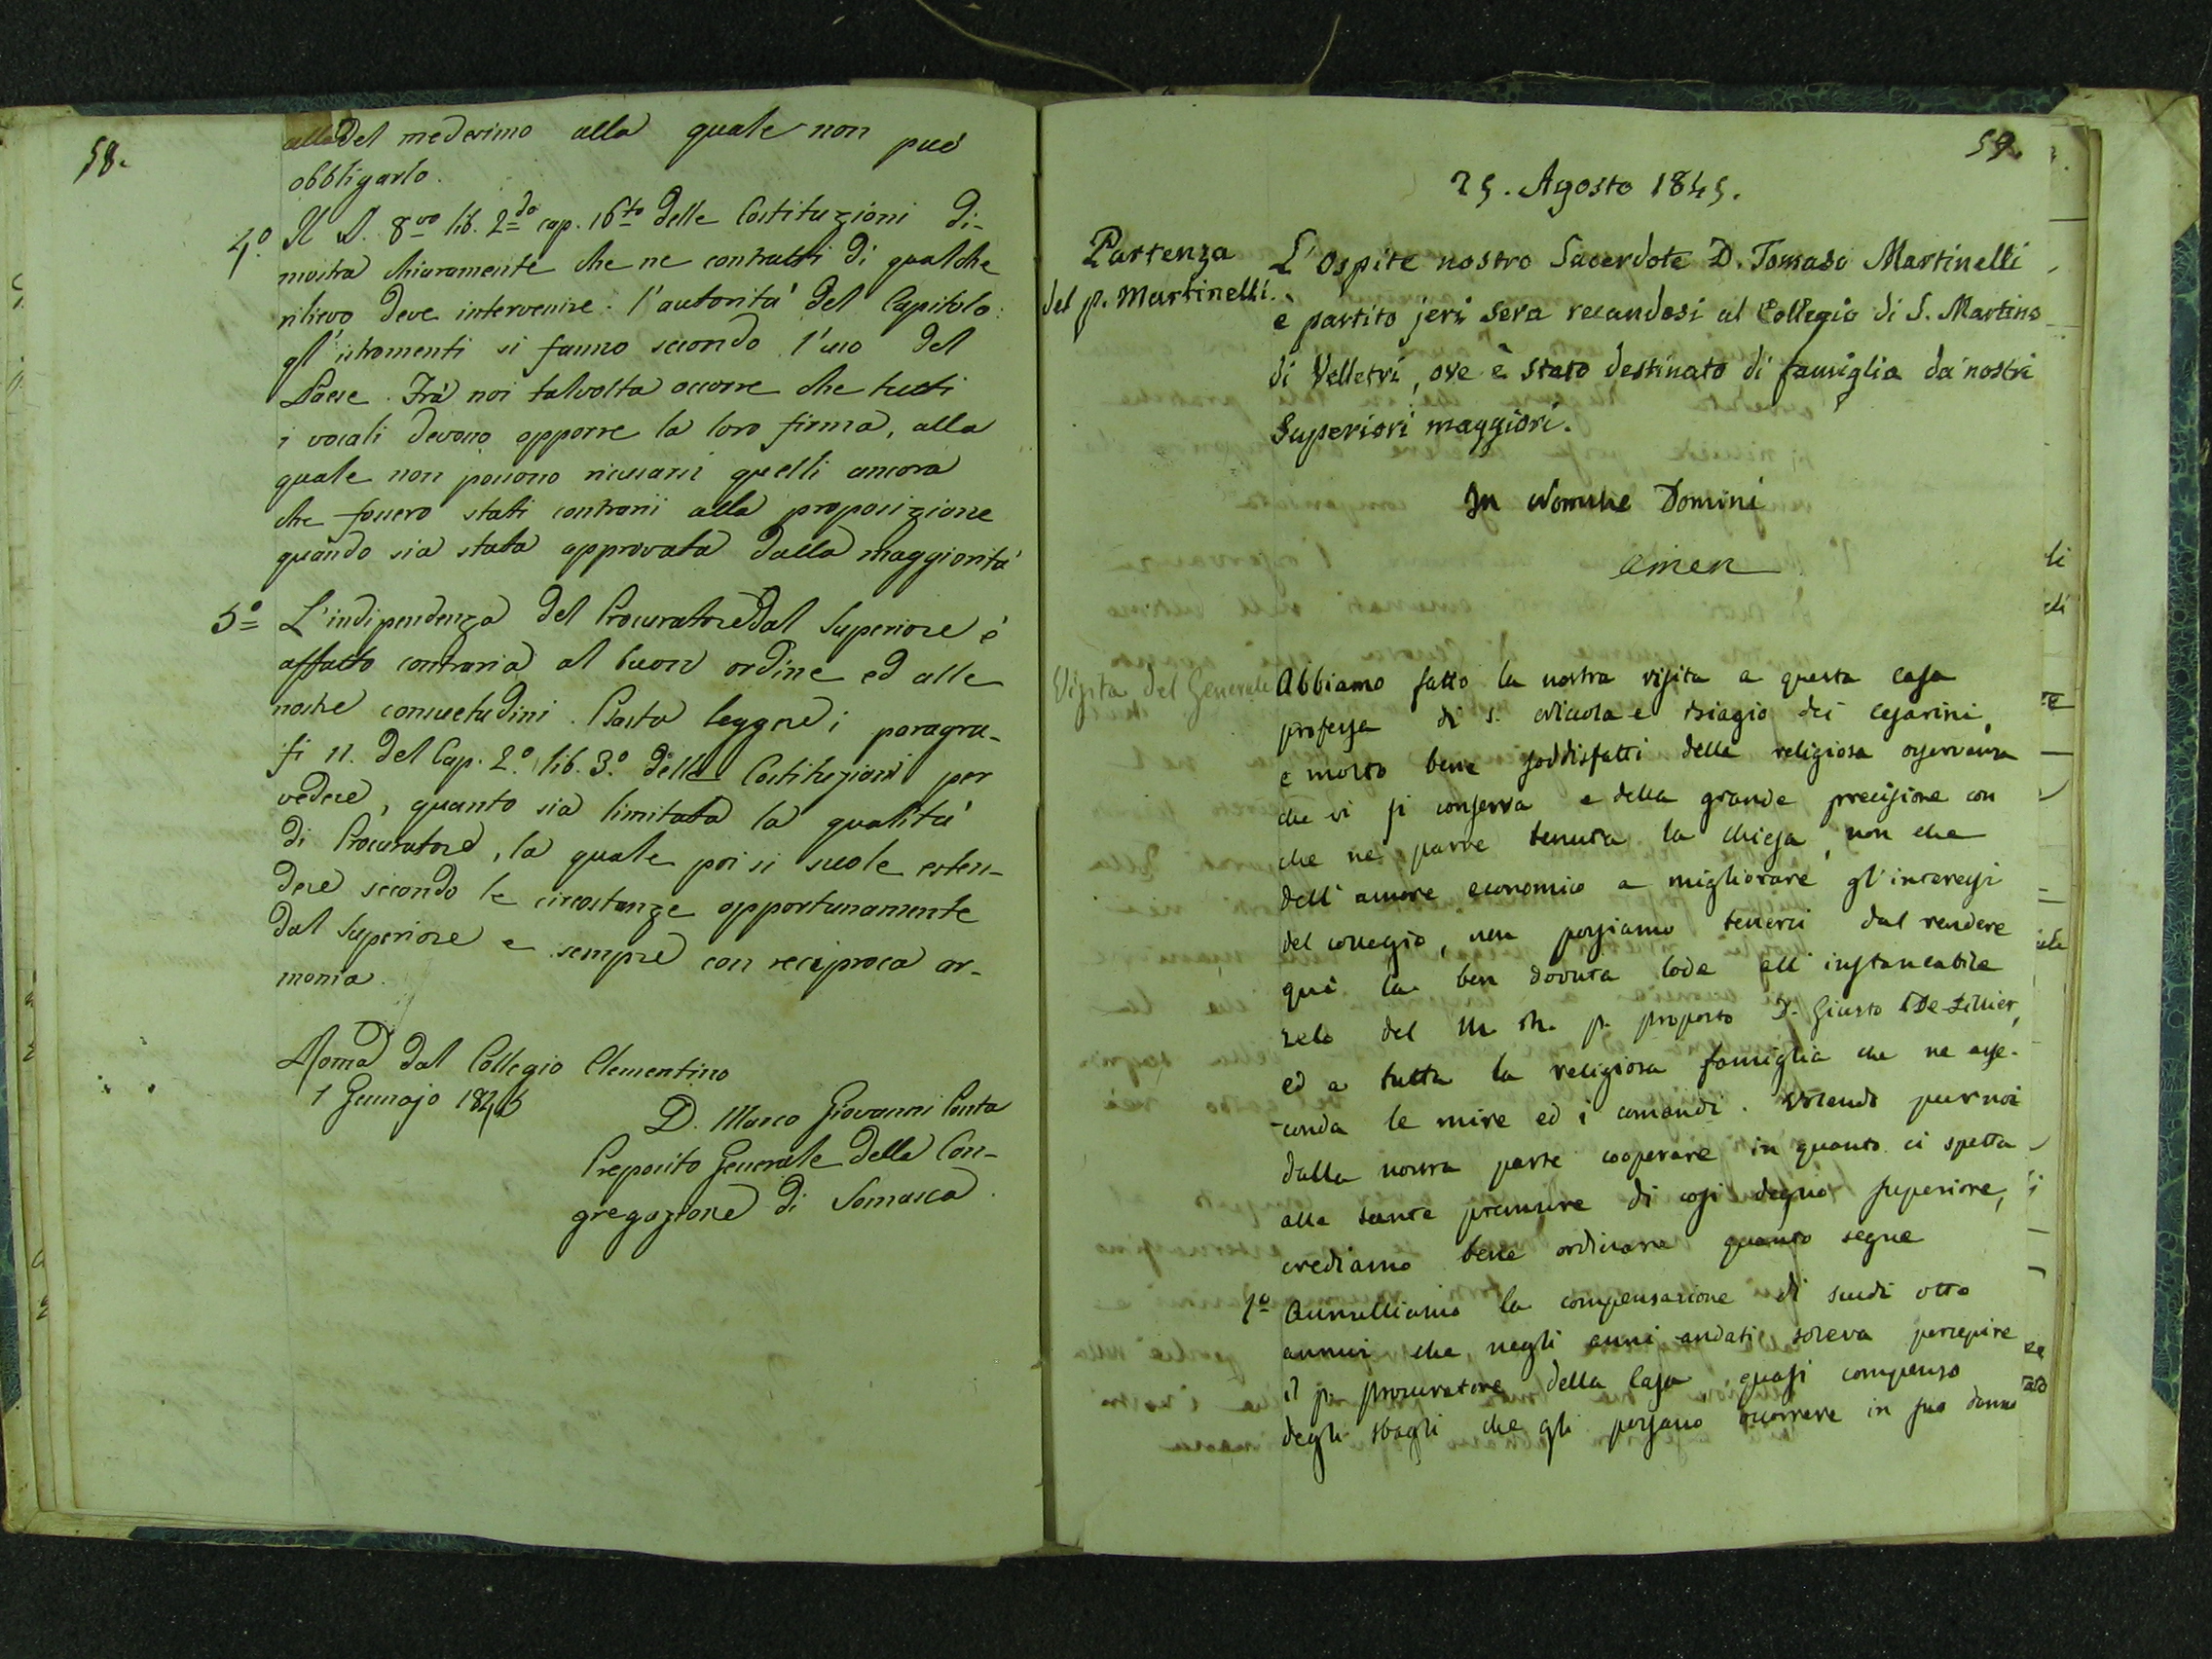 58.
alla del medesimo alla quale non può
obbligarlo.
4.° Il §. 8vo lib. 2do cap. 16to delle Costituzioni di-
mostra chiaramente che ne contratti di qualche
rilievo deve intervenire l'autorità del Capitolo:
gl'istromenti si fanno secondo l'uso del
Paese. Frà noi talvolta occorre che tutti
i vocali devono apporre la loro firma, alla
quale non possono ricusarsi quelli ancora
che fossero stati contrarii alla proposizione
quando sia stata approvata dalla maggiorità
5° L'indipendenza del Procuratore dal Superiore è
affatto contraria al buon ordine ed alle
nostre consuetudini. Basta leggere i paragra-
fi 11. del Cap. 2.° lib. 3.° delle Costituzioni per
vedere, quanto sia limitata la qualità
di Procuratore, la quale poi si suole esten-
dere secondo le circostanze opportunamente
dal Superiore e sempre con reciproca ar-
monia.
Roma dal Collegio Clementino
1 Gennajo 1846
D. Marco Giovanni Ponta
Preposito Generale della Con-
gregazione di Somasca.
59.
25. Agosto 1845.
Partenza
del p. Martinelli.
L'Ospite nostro Sacerdote D. Tomaso Martinelli
e partito jeri sera recandosi al Collegio di S. Martino
di Velletri, ove è stato destinato di famiglia da' nostri
Superiori maggiori.
In Nomine Domini
Amen
Visita del Generale
Abbiamo fatto la nostra visita a questa casa
professa di S. Niccola e Biagio dei Cesarini,
e molto bene soddisfatti della religiosa osservanza
che vi si conserva e della grande precisione con
che ne parve tenuta la chiesa, non che
dell'amore economico a migliorare gl'interessi
del collegio, non possiamo tenerci dal rendere
quì la ben dovuta lode all'instancabile
zelo del M. R. p. proposto D. Giusto De-Zillier,
ed a tutta la religiosa famiglia che ne asse-
conda le mire ed i comandi. Volendo pur noi
dalla nostra parte cooperare in quanto ci spetta
alle sante premure di così degno superiore,
crediamo bene ordinare quanto segue
1° Annulliamo la compensazione di scudi otto
annui che negli anni andati soleva percepire
il p. procuratore della Casa, quasi compenso
degli sbagli che gli possano occorrere in suo danno